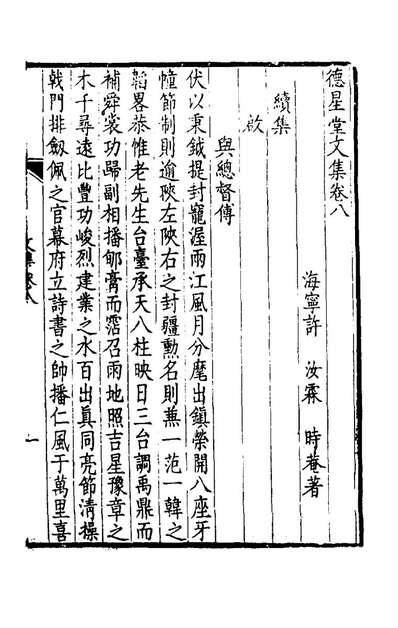 德星堂文集卷八
海寧許　汝霖　時菴著
續集
啟
與總督傅
伏以秉鉞提封寵渥兩江風月分麾出鎮榮開八座牙
幢節制則逾陝左陝右之封疆勲名則兼一范一韓之
韜畧恭惟老先生台臺承天八柱映日三台調禹鼎而
補舜裳功歸副相播郇膏而霑召雨地照吉星豫章之
木千尋遠比豐功峻烈建業之水百出真同亮節清操
戟門排劔佩之官幕府立詩書之帥播仁風于萬里喜
文集卷八
一